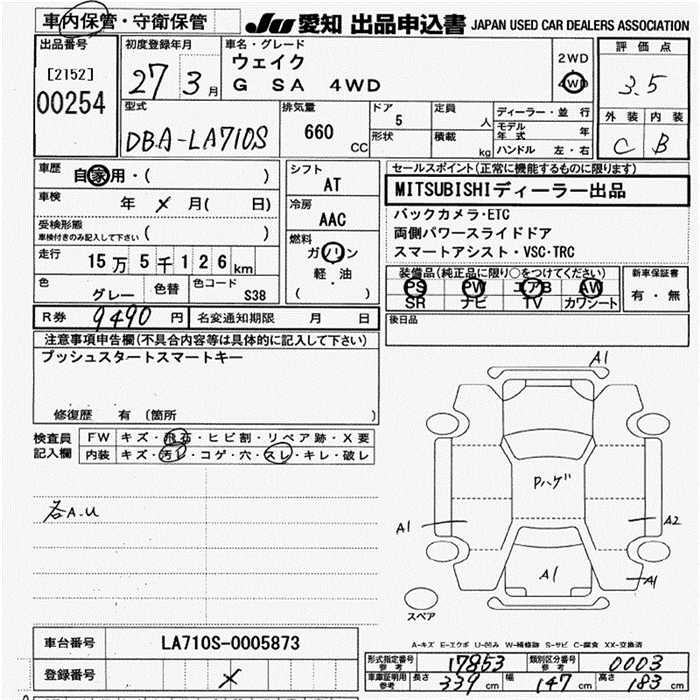 車内保管・守衛保管
JU 愛知 出品申込書 JAPAN USED CAR DEALERS ASSOCIATION
出品番号
[2152]
00254
初度登録年月
27 3 月
車名・グレード
ウェイク
G SA 4WD
2WD
4WD
評価点
3.5
外装 内装
C B
型式
DBA-LA710S
排気量
660 CC
ドア
5
形状
定員
人
積載
kg
ディーラー・並行
モデル年式 年
ハンドル 左・右
車歴
自家用・( )
車検
年 × 月( 日)
受検形態
車検付きのみ記入して下さい ( )
走行
15万5千126km
色
グレー
色替
色コード
S38
シフト
AT
冷房
AAC
燃料
ガソリン
軽・油
( )
セールスポイント(正常に機能するものに限ります)
MITSUBISHIディーラー出品
バックカメラ・ETC
両側パワースライドドア
スマートアシスト・VSC・TRC
装備品(純正品に限り○をつけてください)
PS PW エアB AW
SR ナビ TV カワシート
新車保証書
有・無
R券 9490 円
名変通知期限 月 日
後日品
注意事項申告欄(不具合内容等は具体的に記入して下さい)
プッシュスタートスマートキー
修復歴 有 (箇所 )
検査員記入欄
FW キズ・飛石・ヒビ割・リペア跡・X要
内装 キズ・汚レ・コゲ・穴・スレ・キレ・破レ
各A.U
A1
Pハゲ
A1
A2
A1
A1
スペア
A-キズ E-エクボ U-凹み W-補修跡 S-サビ C-腐食 XX-交換済
車台番号
LA710S-0005873
登録番号
×
形式指定番号 参考 17853
類別区分番号 参考 0003
車庫証明用 参考 長さ 339 cm 幅 147 cm 高さ 183 cm